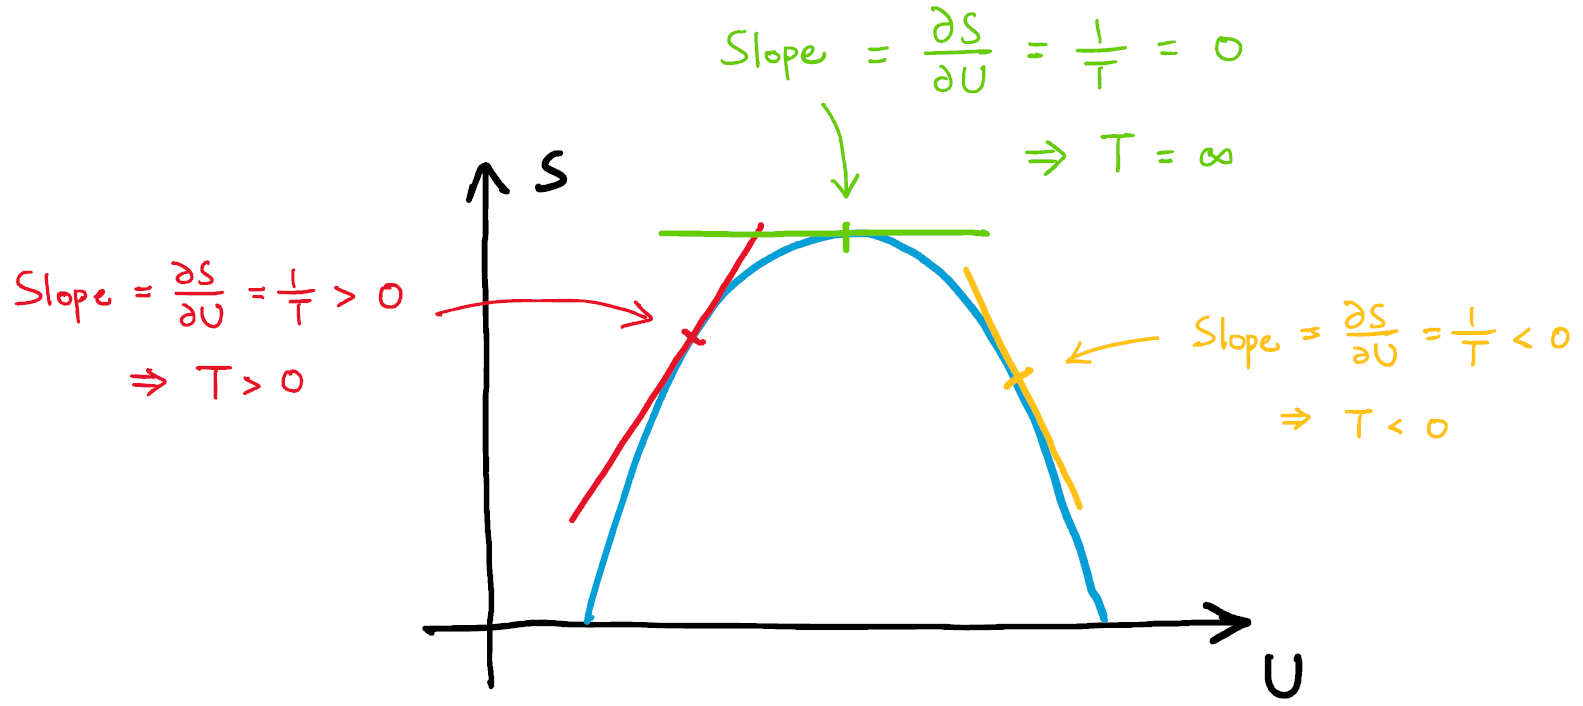 Slope = ∂S/∂U = 1/T = 0
⇒ T = ∞
S
Slope = ∂S/∂U = 1/T > 0
⇒ T > 0
Slope = ∂S/∂U = 1/T < 0
⇒ T < 0
U